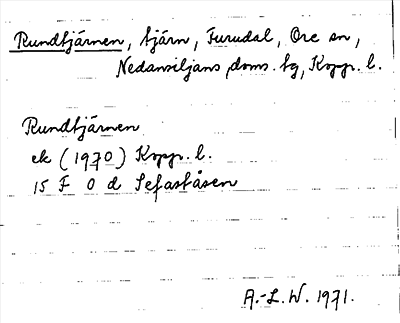 Rundtjärnen, tjärn, Furudal, Ore sn,
Nedansiljans doms. tg, Kopp. l.
Rundtjärnen
ek (1970) Kopp. l.
15 F 0 d Sefaståsen
A.-L. W. 1971.